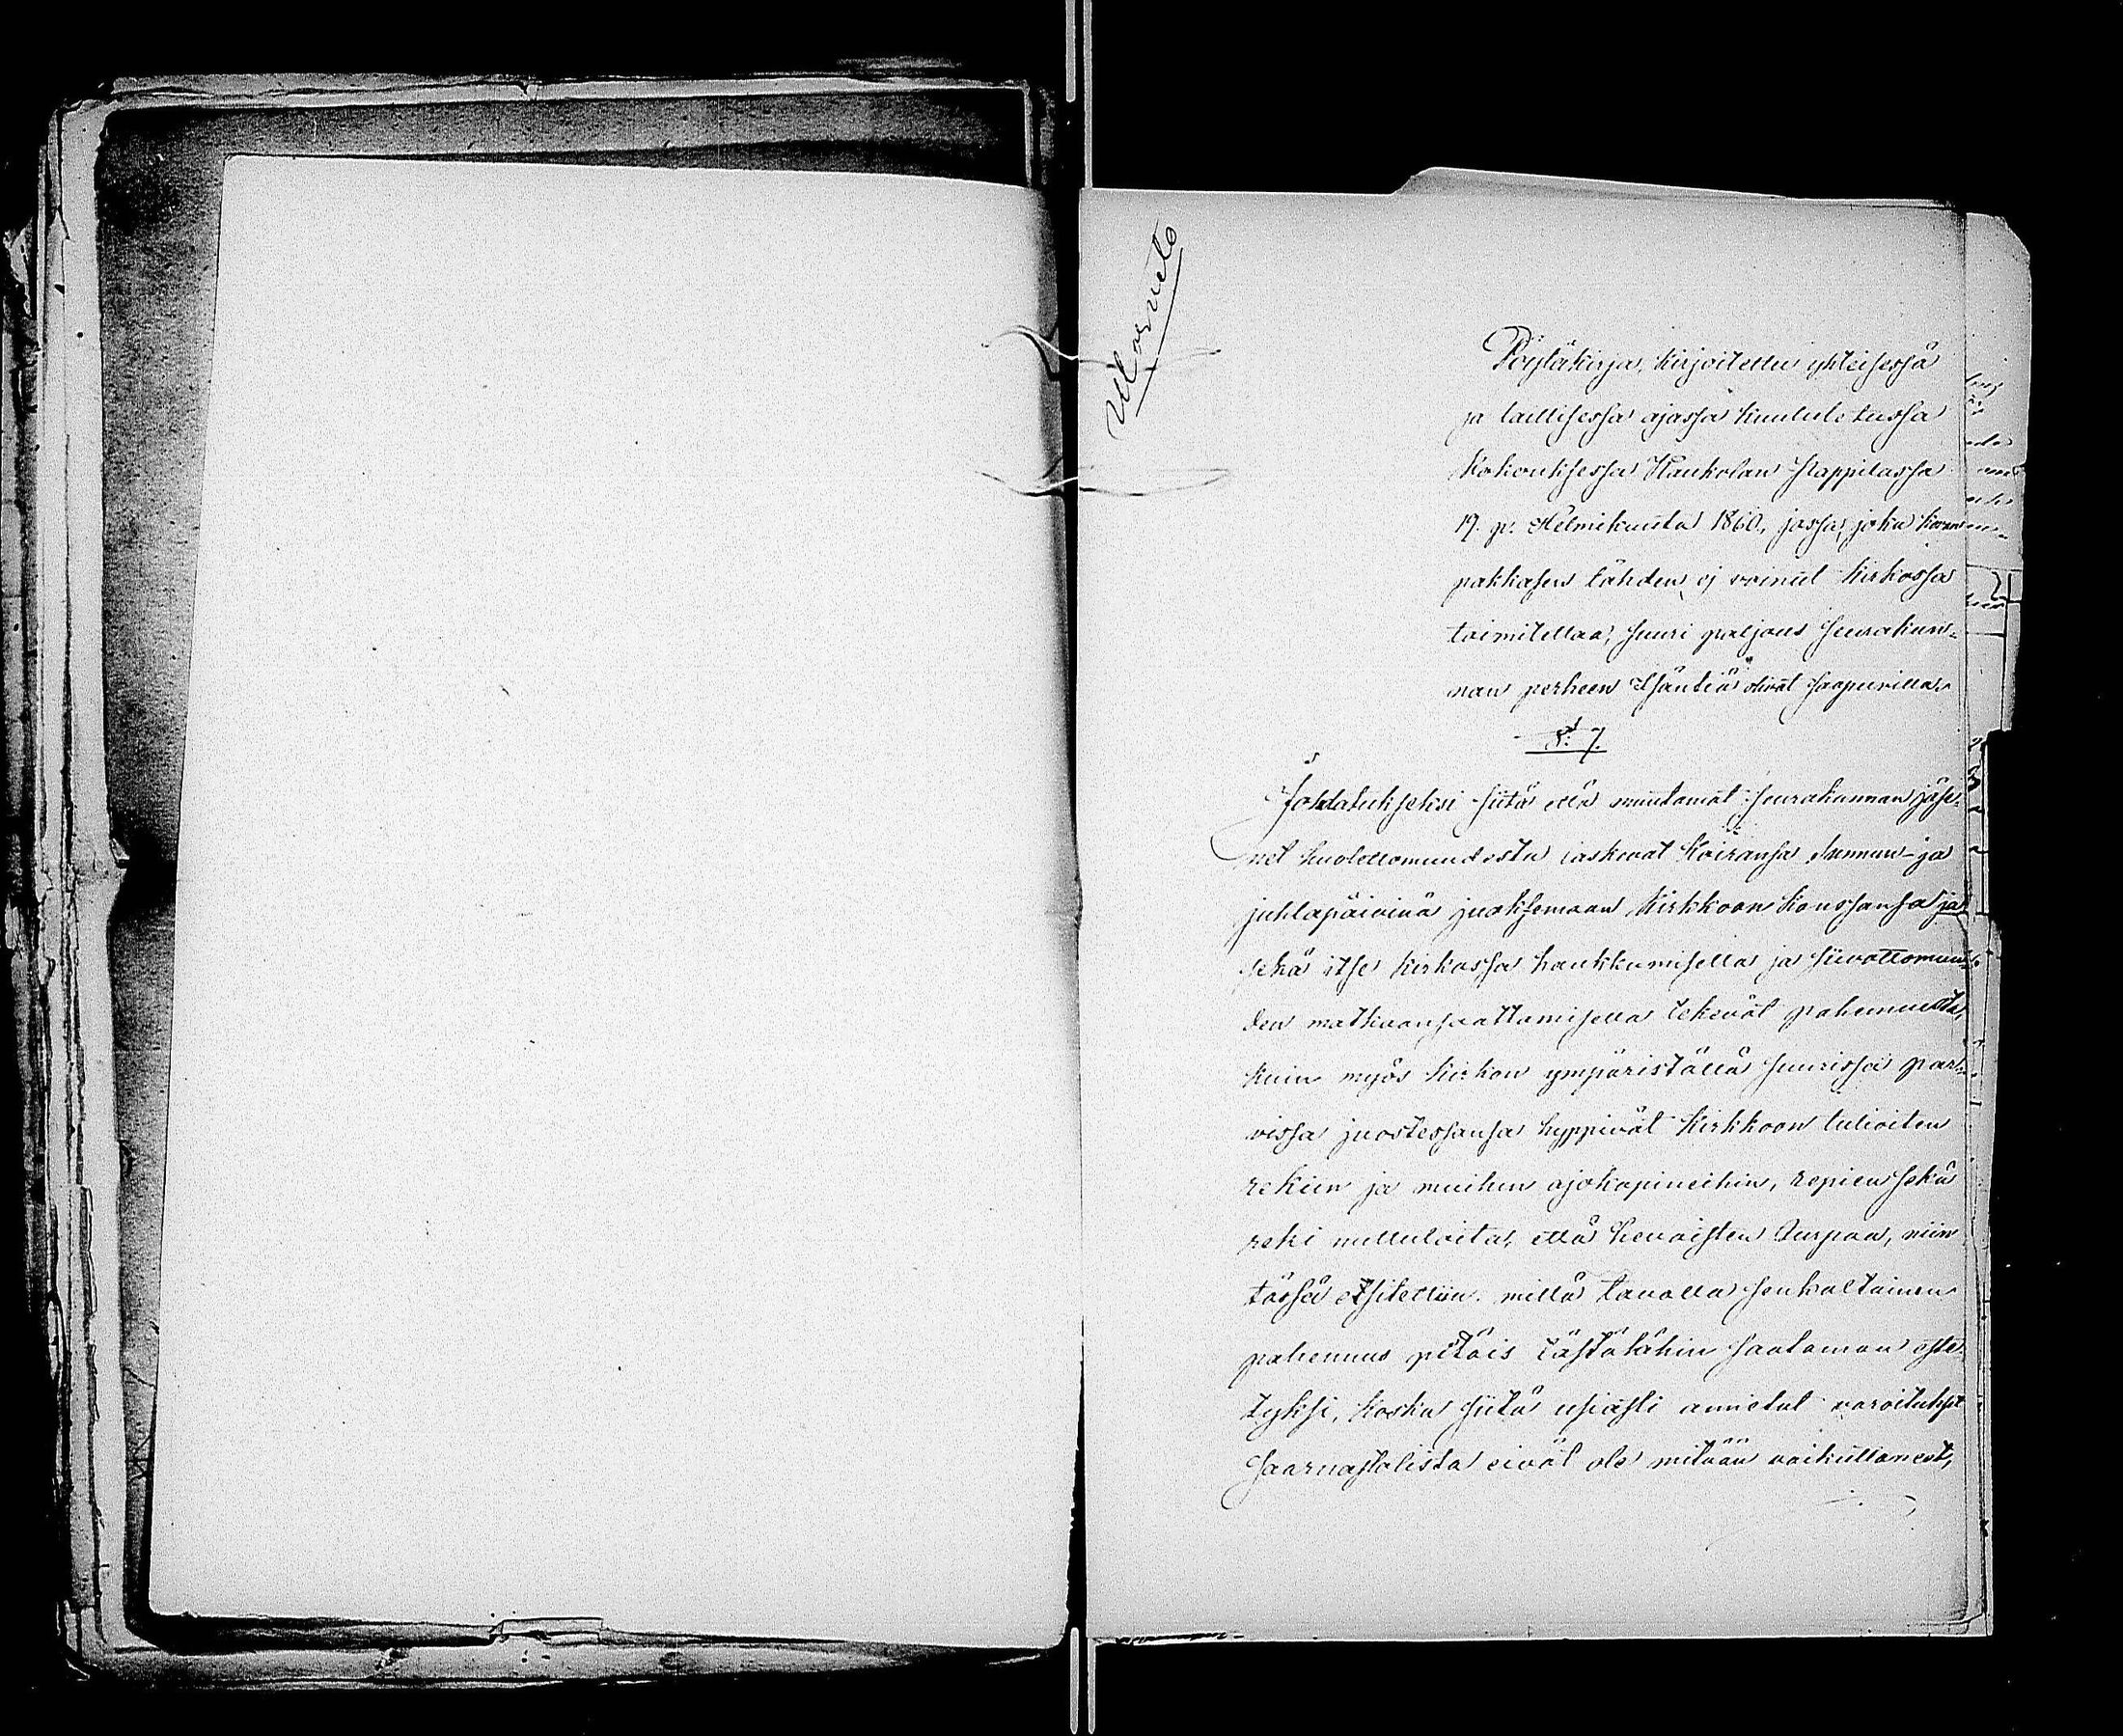 Ulosveto
Pöytäkirja, kirjoitettu yhteisessä
ja laillisessa ajassa kuulutetussa
kokouksessa Haukolan pappilassa
19. p. Helmikuuta 1860, jossa, joka kovan
pakkasen tähden ej voinut kirkossa
toimitettaa, suuri paljous seurakun-
nan perheen Isäntiä olivat saapuvilla.
§: 7.
Johdatukseksi siitä että muutamat seurakunnan jäse-
net huolettomuudesta laskevat koiransa sunnun- ja
juhlapäivinä juoksemaan kirkkoon kanssansa ja
sekä itse kirkossa haukkumisella ja siivottomuu-
den matkaansaattamisella tekevät pahennusta,
kuin myös kirkon ympäriställä suurissa par-
vissa juostessansa hyppivät kirkkoon tulioiten
rekiin ja muihin ajokapineihin, repien sekä
reki nuttuloita, että hevoisten turpaa, niin
tässä etsitettiin millä tavalla senkaltainen
pahennus pitäis tästälähin saataman este-
tyksi, koska siitä usiasti annetut varoitukset
saarnastolista eivät ole mitään vaikuttaneet,